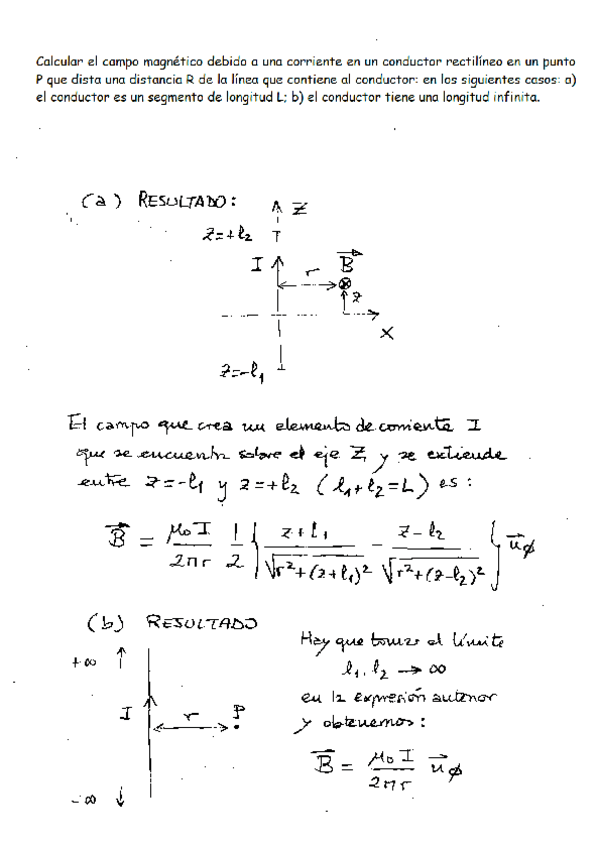 Calcular el campo magnético debido a una corriente en un conductor rectilíneo en un punto
P que dista una distancia R de la línea que contiene al conductor: en los siguientes casos: a)
el conductor es un segmento de longitud L; b) el conductor tiene una longitud infinita.
(a) RESULTADO:
Z
z=+l₂
I
r
B⃗
z
X
z=-l₁
El campo que crea un elemento de corriente I
que se encuentra sobre el eje Z, y se extiende
entre z=-l₁ y z=+l₂ (l₁+l₂=L) es:
B⃗ = μ₀I/2πr 1/2 { z+l₁/√(r²+(z+l₁)²) - z-l₂/√(r²+(z-l₂)²) } u⃗φ
(b) RESULTADO
+∞
I
r
P
-∞
Hay que tomar el límite
l₁, l₂ → ∞
en la expresión anterior
y obtenemos:
B⃗ = μ₀I/2πr u⃗φ